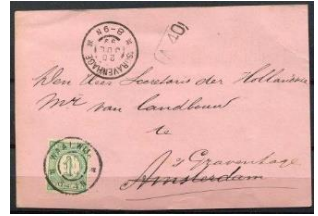 8-9N
'S-GRAVENHAGE
20
JUL
(A 40)
Den Heer Secretaris der Hollandsche
Mij van Landbouw
te
's Gravenhage
Amsterdam
1